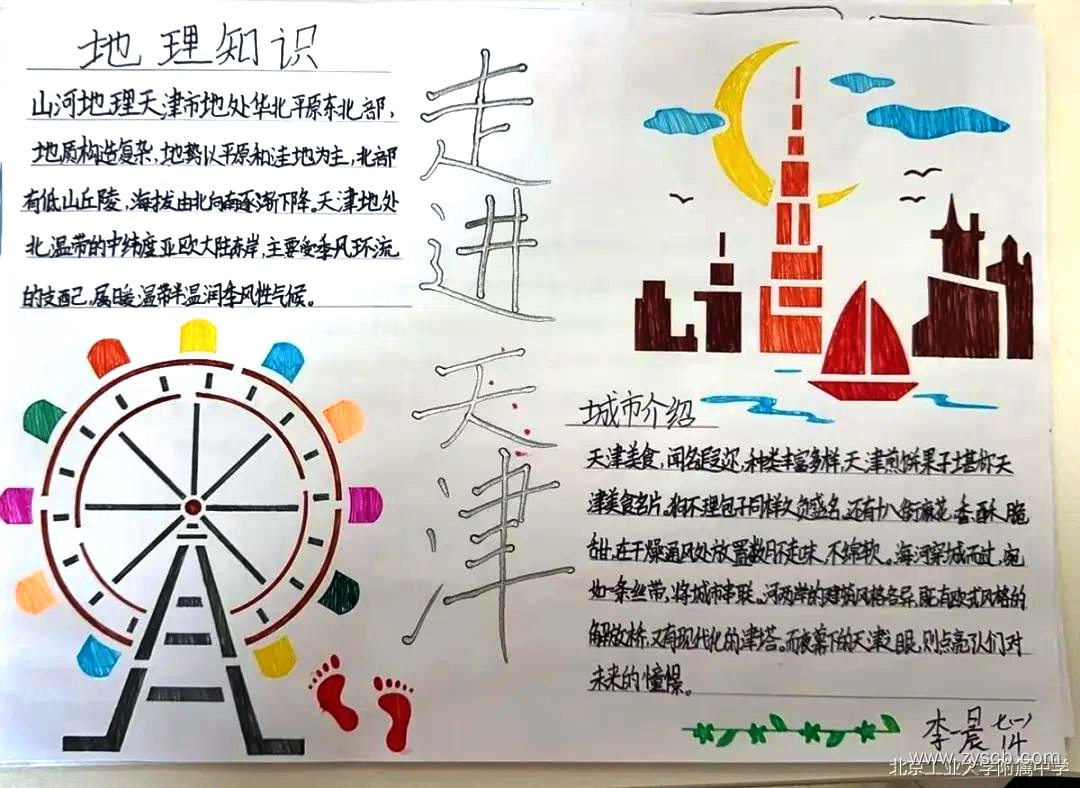 地理知识
山河地理天津市地处华北平原东北部，
地质构造复杂，地势以平原和洼地为主，北部
有低山丘陵，海拔由北向南逐渐下降。天津地处
北温带的中纬度亚欧大陆东岸，主要受季风环流
的支配，属暖温带半温润季风性气候。
走进天津
城市介绍
天津美食，闻名遐迩，种类丰富多样，天津煎饼果子堪称天
津美食名片。狗不理包子同样久负盛名，还有十八街麻花，香、酥、脆
甜，在干燥通风处放置数日不走味，不绵软。海河穿城而过，宛
如一条丝带，将城市串联。河两岸的建筑风格各异，既有欧式风格的
解放桥，又有现代化的津塔。而夜幕下的天津之眼，则点亮人们对
未来的憧憬。
李晨 七(一)
14
www.zyscb.com
北京工业大学附属中学